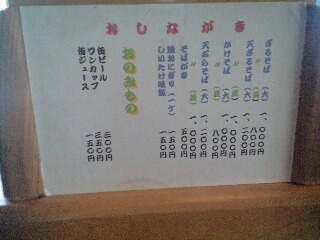 おしながき
ざるそば（大）一、〇〇〇円
〃（並）八〇〇円
天ざるそば（大）一、二〇〇円
〃（並）一、〇〇〇円
かけそば（大）一、〇〇〇円
〃（並）八〇〇円
天ぷらそば（大）一、二〇〇円
〃（並）一、〇〇〇円
そばがき 五〇〇円
焼おにぎり（一ケ）一五〇円
しいたけ 一五〇円
おのみもの
缶ビール 三〇〇円
ワンカップ 三五〇円
缶ジュース 一五〇円